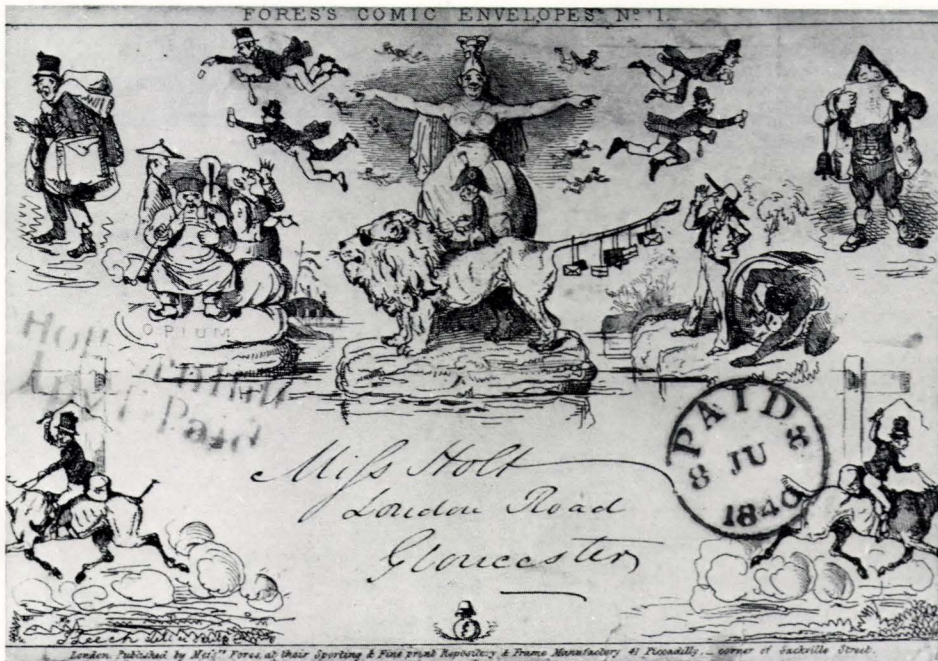 FORES'S COMIC ENVELOPES Nº 1.
OPIUM
Paid
PAID
8 JU 8
1840
Miss Holt
London Road
Gloucester
J Leech
London. Published by Mess.rs Fores, at their Sporting & Fine print Repository & Frame Manufactory 41 Piccadilly, _ corner of Sackville Street.